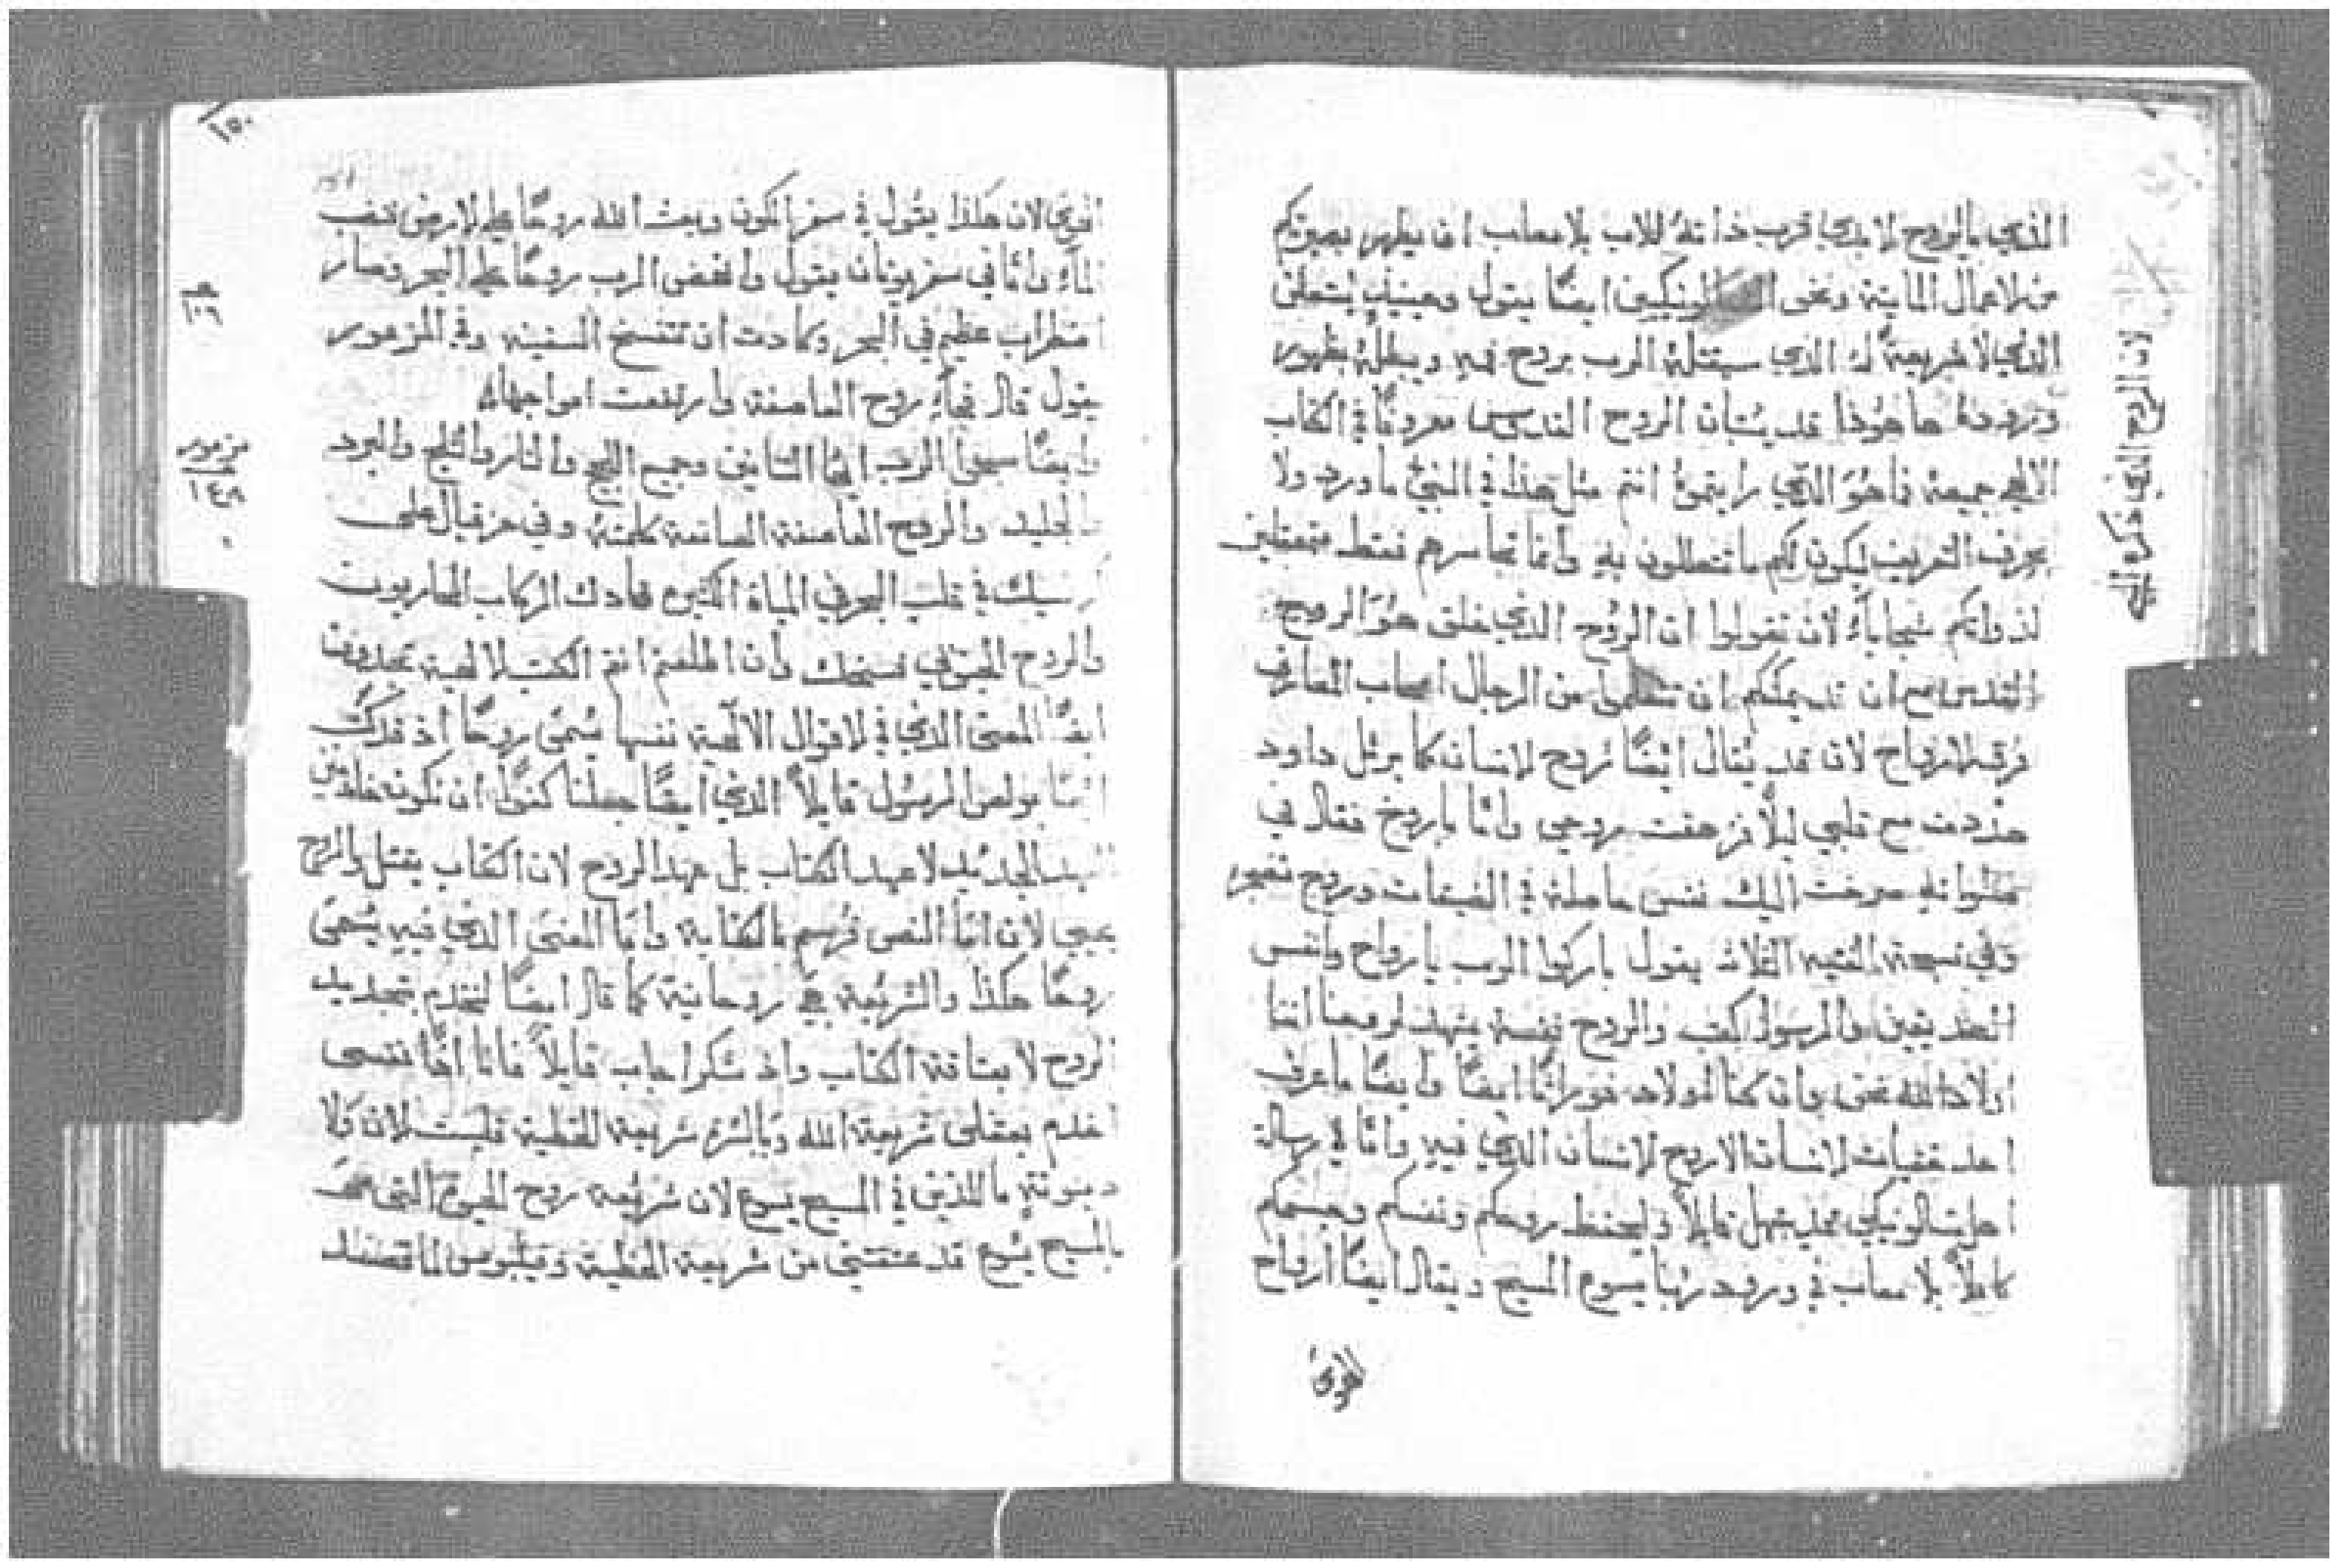 الذي بالروح الابدي قرب ذاته للاب بلا معاب ان يطهر بصيرتكم
من الاعمال المايتة ونحو التسالونيكيين ايضًا يقول وحينيذٍ يُستعلن
الذي لا شريعةً له الذي سيقتله الرب بروح فيهِ ويبطله بظهور
وروده هاهُوذا قد يُبان الروح القدس معروفًا في الكتاب
الالهي جميعه فاهُوَ الذي رايتموُه انتم مثل هذا في النبيّ ما ورد ولا
بحرف التعريف ليكون لكم ما تتعللون بهِ وانما تجاسرهم فقط
لذواتكم لان تقولوا ان الروُح الذي خلق هُوَ الروح
القدس مع ان قد يمكنكم ان تتعلموا من الرجال اصحاب المعارف
فرق الارواح لان قد يُقال ايضًا رُوح الانسان كما يرتل داود
هذذت مع قلبي ليلاً فزهقت روحي وامّا باروخ فقال في
صلواته صرخت اليك نفس حاصلة في الضيقات وروح ضجر
وفي تسبحة الفتيه الثلاث يقول باركوا الرب يا ارواح وانفس
الصديقين والرسول كتب والروح نفسهُ يشهد لروحنا اننا
اولاد الله نحن وان كنا اولاد فوراثًا ايضًا وايضًا ما عرف
احد خفيات الانسان الا روح الانسان الذي فيهِ وامّا في رسالة
اهل تسالونيكي قايلاً وليحفظ روحكم ونفسكم وجسمكم
كاملاً بلا معاب في ورود ربنا يسوع المسيح ويقال ايضًا ارواح
القوي
لان الروح الذي ذكره النبي
١٥٠
القوي لان هكذا يقول في سفر التكون وبعث الله روحًا على الارض فنضب
الماء وامّا في سفر يونان يقول وانهض الرب روحًا على البحر فصار
اضطراب عظيم في البحر وكادت ان تنفسخ السفينه وفي المزمور
يقول قال فجاءت روح العاصفة وارتفعت امواجها
وايضًا سبحوا الرب ايتها التنانين وجميع اللجج والنار والثلج والبرد
والجليد والروح العاصفة الصانعة كلمتهُ وفي حزقيال على
في قلب البحر في المياه الكثيره قادك الركاب
والروح الجنوبي فسخك وان اطلعتم انتم الكتب الالهية تجدون
ايضًا المعنى الذي في الاقوال الالهية نفسها يُسمّى روحًا اذ قد كتب
ايضًا بولص الرسول قايلاً الذي ايضًا جعلنا كفوًا ان نكون خادمين
العهد الجديد لا عهد الكتاب بل عهد الروح لان الكتاب يقتل والروح
يحيي لان امّا النص فرسم بالكتابة وامّا المعنى الذي فيهِ يُسمّى
روحًا هكذا والشريعة هي روحانية كما قال ايضًا لنخدم بتجديد
الروح لا بعتاقة الكتاب واذ شكرا جاب قايلاً فانا امّا نفسي
اخدم بعقلي شريعة الله وبالشره شريعة الخطية فليست الان ولا
دينونة ما للذين في المسيح يسوع لان شريعة روح الحيوة التي هي
بالمسيح يسُوع قد عتقتني من شريعة الخطية وفيلبوس لما قصد
١٠٦
مزمور
١٤٨